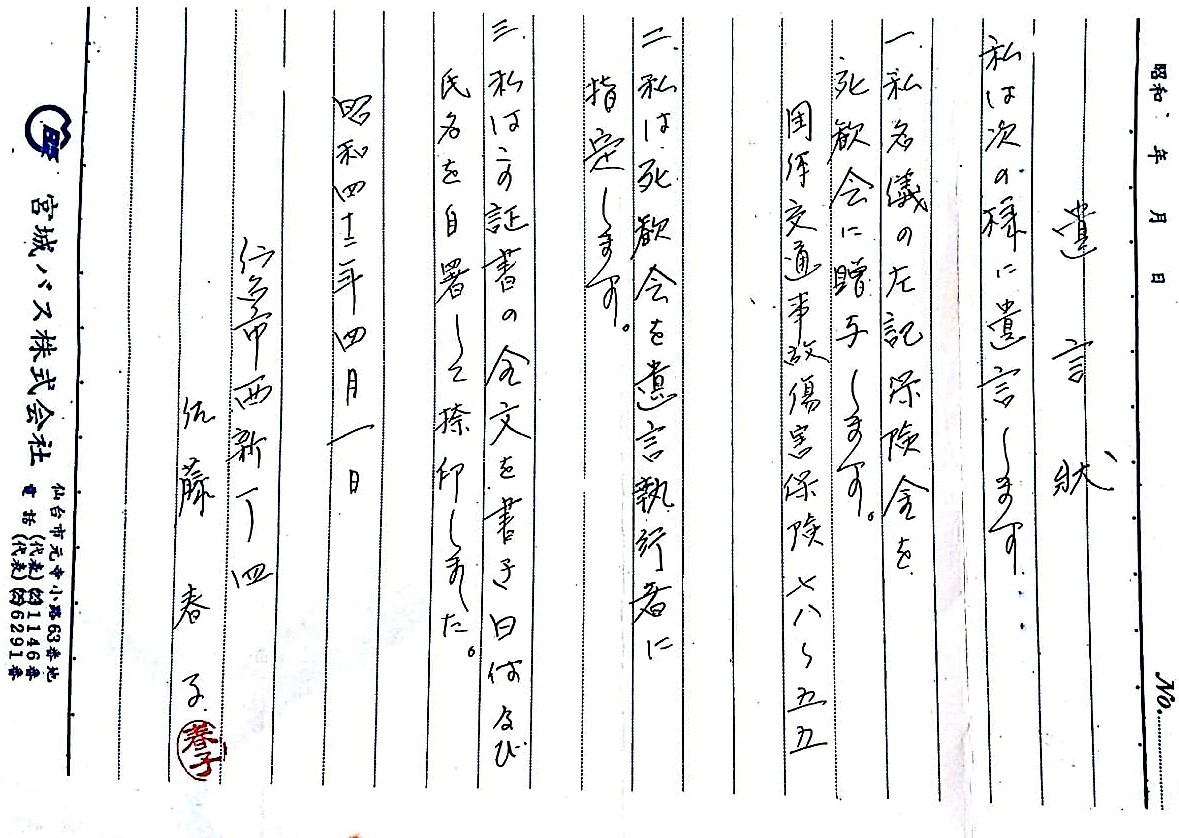 昭和 年 月 日
No.
遺言状
私は次の様に遺言します
一.私名儀の左記保険金を
死歓会に贈与します。
国保交通事故傷害保険七八〜五五
二.私は死歓会を遺言執行者に
指定します。
三.私はこの証書の全文を書き日付及び
氏名を自署して捺印しました。
昭和四十二年四月一日
仙台市西新丁四
佐藤春子
春子
宮城バス株式会社
仙台市元寺小路63番地
電話(代表)(22)1146番
(代表)(22)6291番